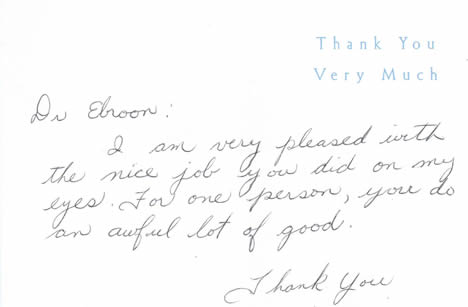 Thank You
Very Much
Dr Ebroon:
I am very pleased with
the nice job you did on my
eyes. For one person, you do
an awful lot of good.
Thank You